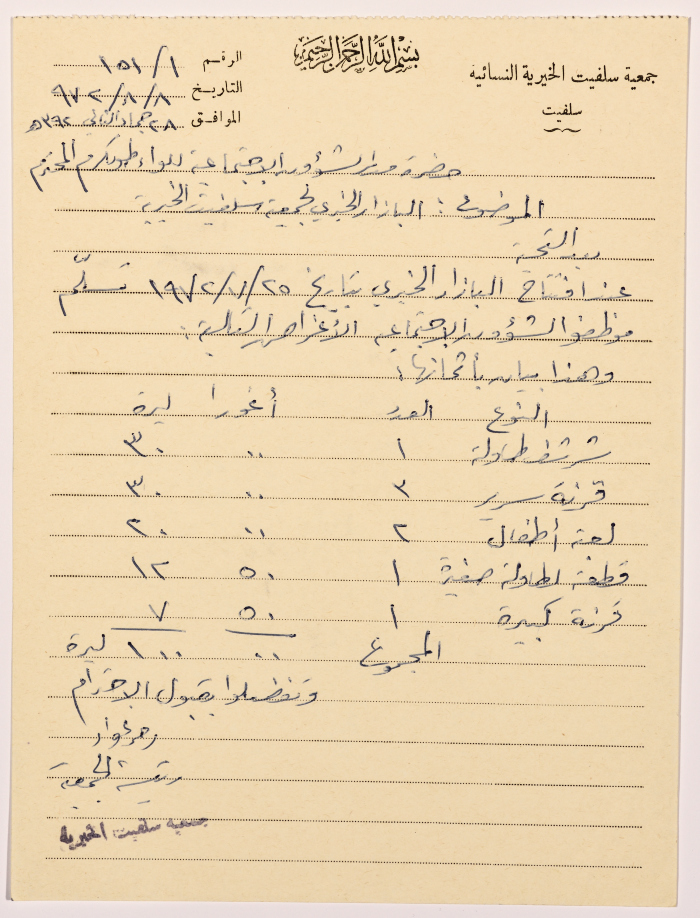 بسم الله الرحمن الرحيم
جمعية سلفيت الخيرية النسائيه
سلفيت
الرقم ١/١٥١
التاريخ ٩٧٢/٨/٨
الموافق ٢٨ جماد الثاني ٣٩٢ هـ
حضرة مدير الشؤون الاجتماعية للواء طولكرم المحترم
الموضوع : البازار الخيري لجمعية سلفيت الخيرية
بعد التحية
عند افتتاح البازار الخيري بتاريخ ١٩٧٢/٧/٢٥ تسلّم
موظفو الشؤون الاجتماعيه الأغراض التالية :
وهذا بيان بأثمانها :
النوع العدد أغورا ليرة
شرشف طاولة ١ ٠٠ ٣٠
قرنة سرير ٣ ٠٠ ٣٠
لعبة أطفال ٢ ٠٠ ٢٠
قطعة لطاولة صغيرة ١ ٥٠ ١٢
قرنة كبيرة ١ ٥٠ ٧
المجموع ٠٠ ١٠٠ ليرة
وتفضلوا بقبول الاحترام
رئيسة الجمعية
جمعية سلفيت الخيرية